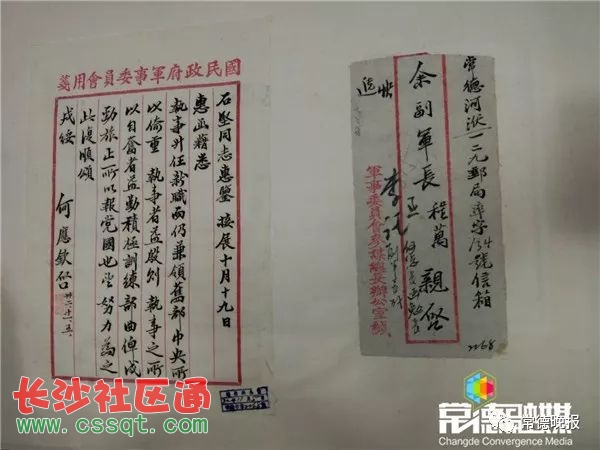 國民政府軍事委員會用箋
石堅同志惠鑒 接展十月十九日
惠函藉悉
執事升任新職而仍兼領舊部中央所
以倚重 執事者益殷則 執事之所
以自奮者益勤積極訓練部曲俾成
勁旅正所以報党國也望努力為之
此復順頌
戎綏
何應欽啓 卅二、十一、五、
常德河洑一二九郵局專字134號信箱
余副軍長程萬 親啓
快遞
軍事委員會參謀總長辦公室緘
2268
长沙社区通
www.cssqt.com
常德融媒
Changde Convergence Media
常德晚报